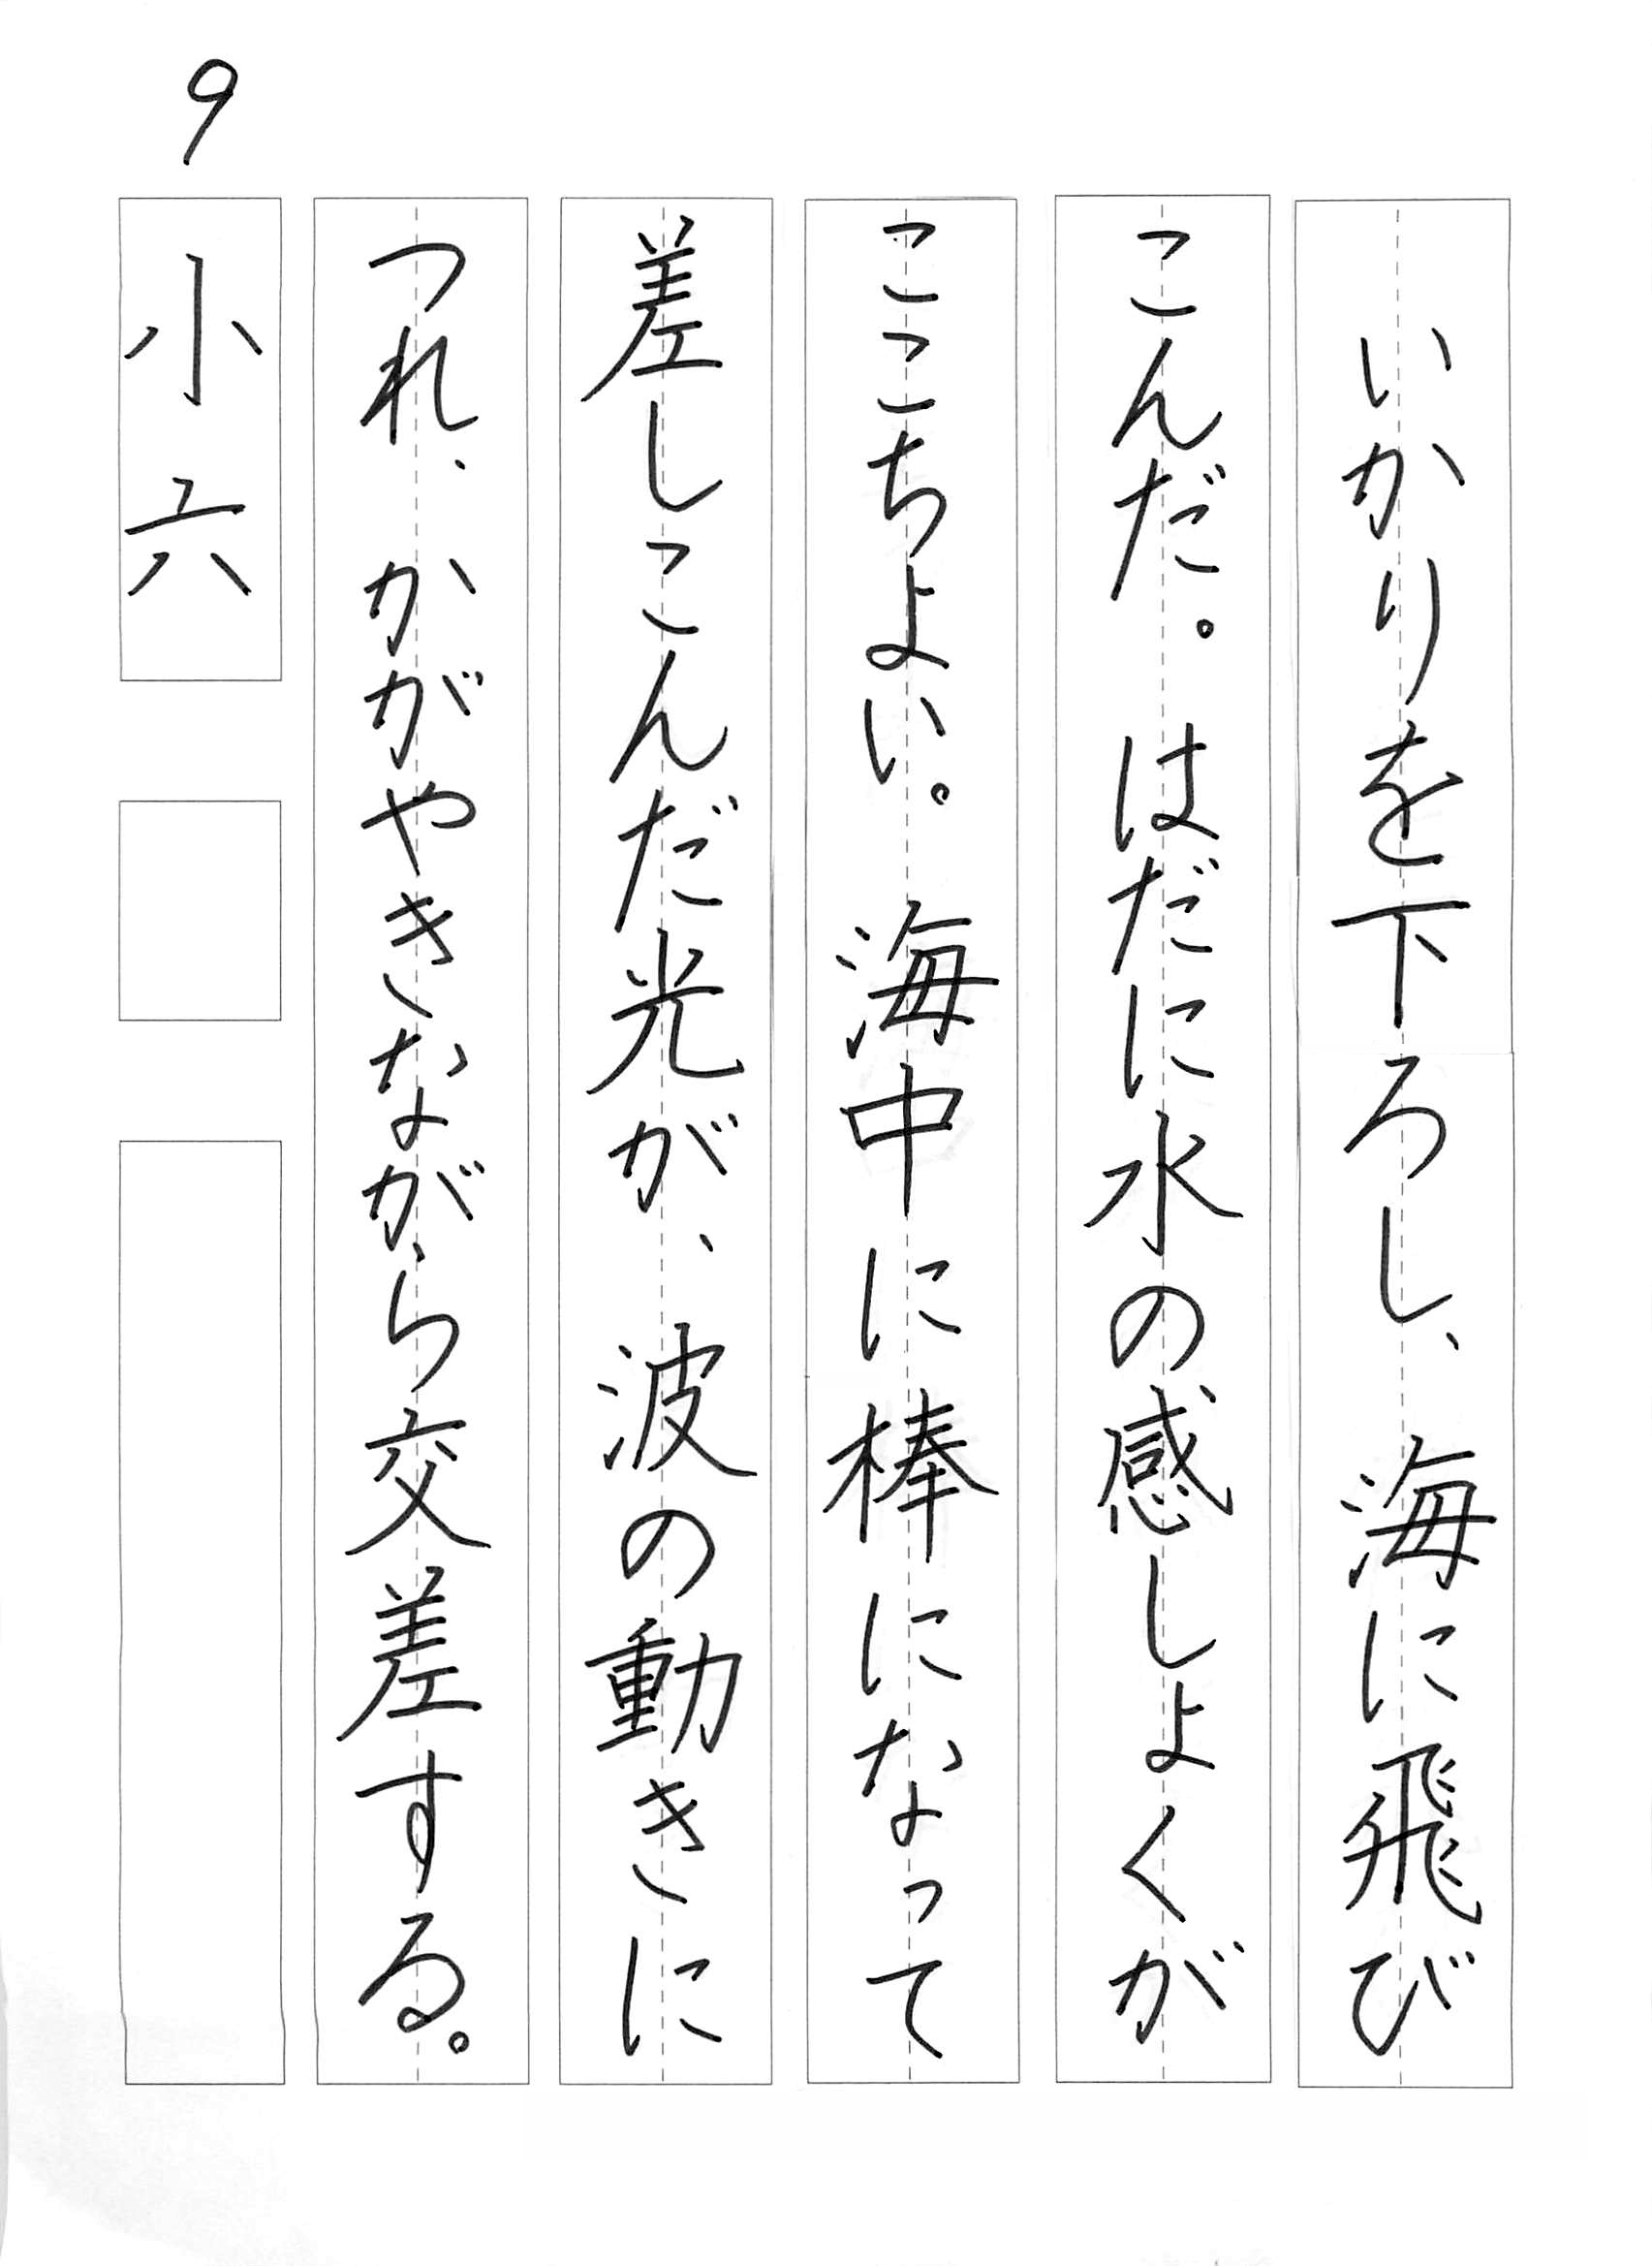 9
いかりを下ろし、海に飛び
こんだ。はだに水の感しょくが
ここちよい。海中に棒になって
差しこんだ光が、波の動きに
つれ、かがやきながら交差する。
小六